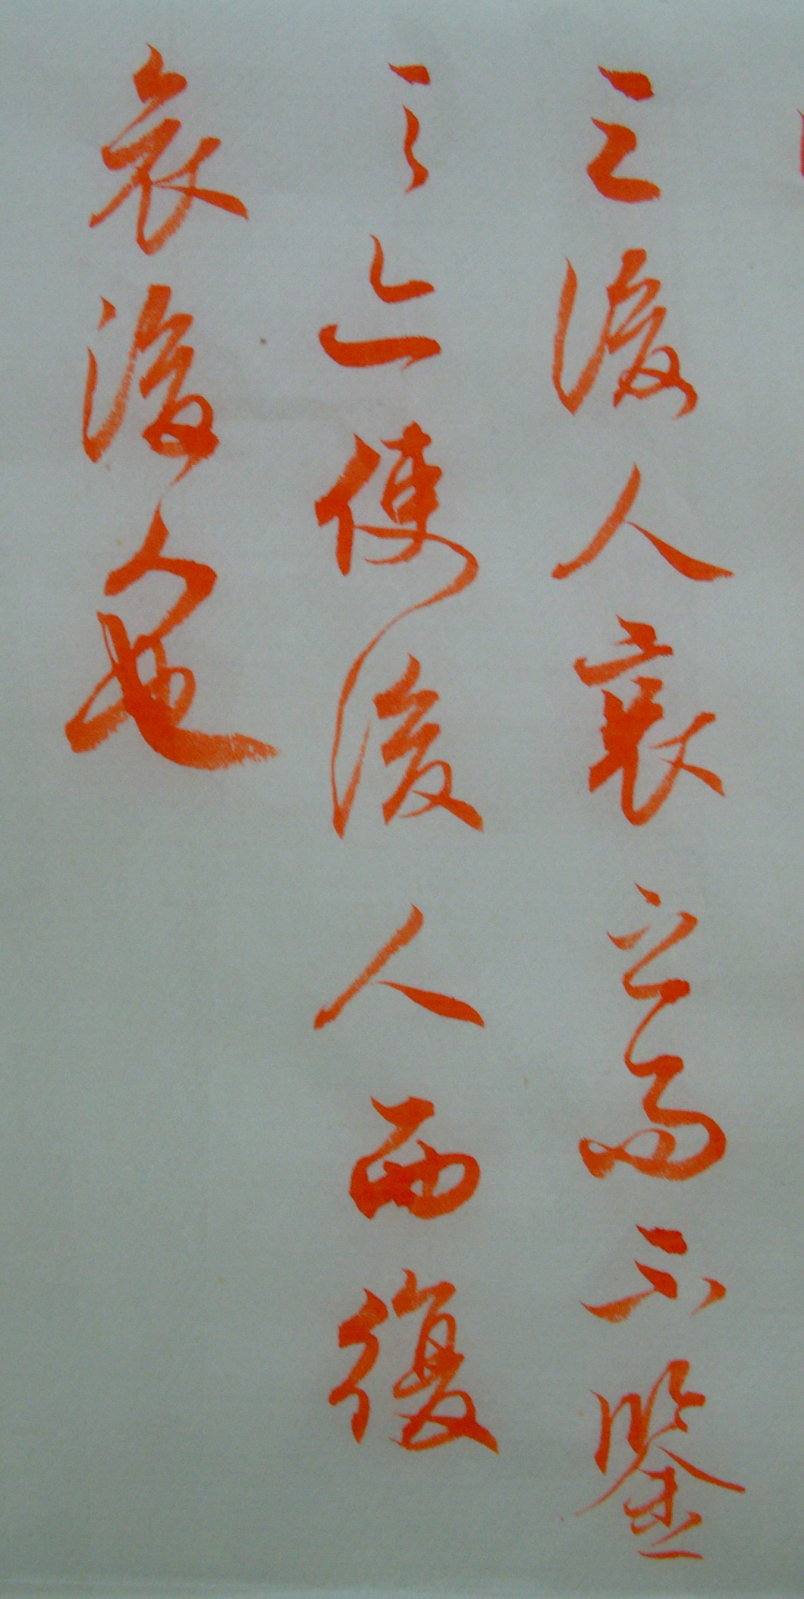 之後人哀之而不鑒
之亦使後人而復
哀後人也